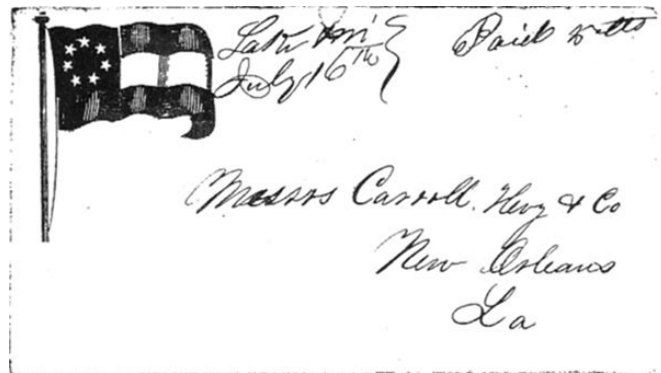 Lake
July 16th
Paid
Messrs Carroll. Hoy & Co
New Orleans
La